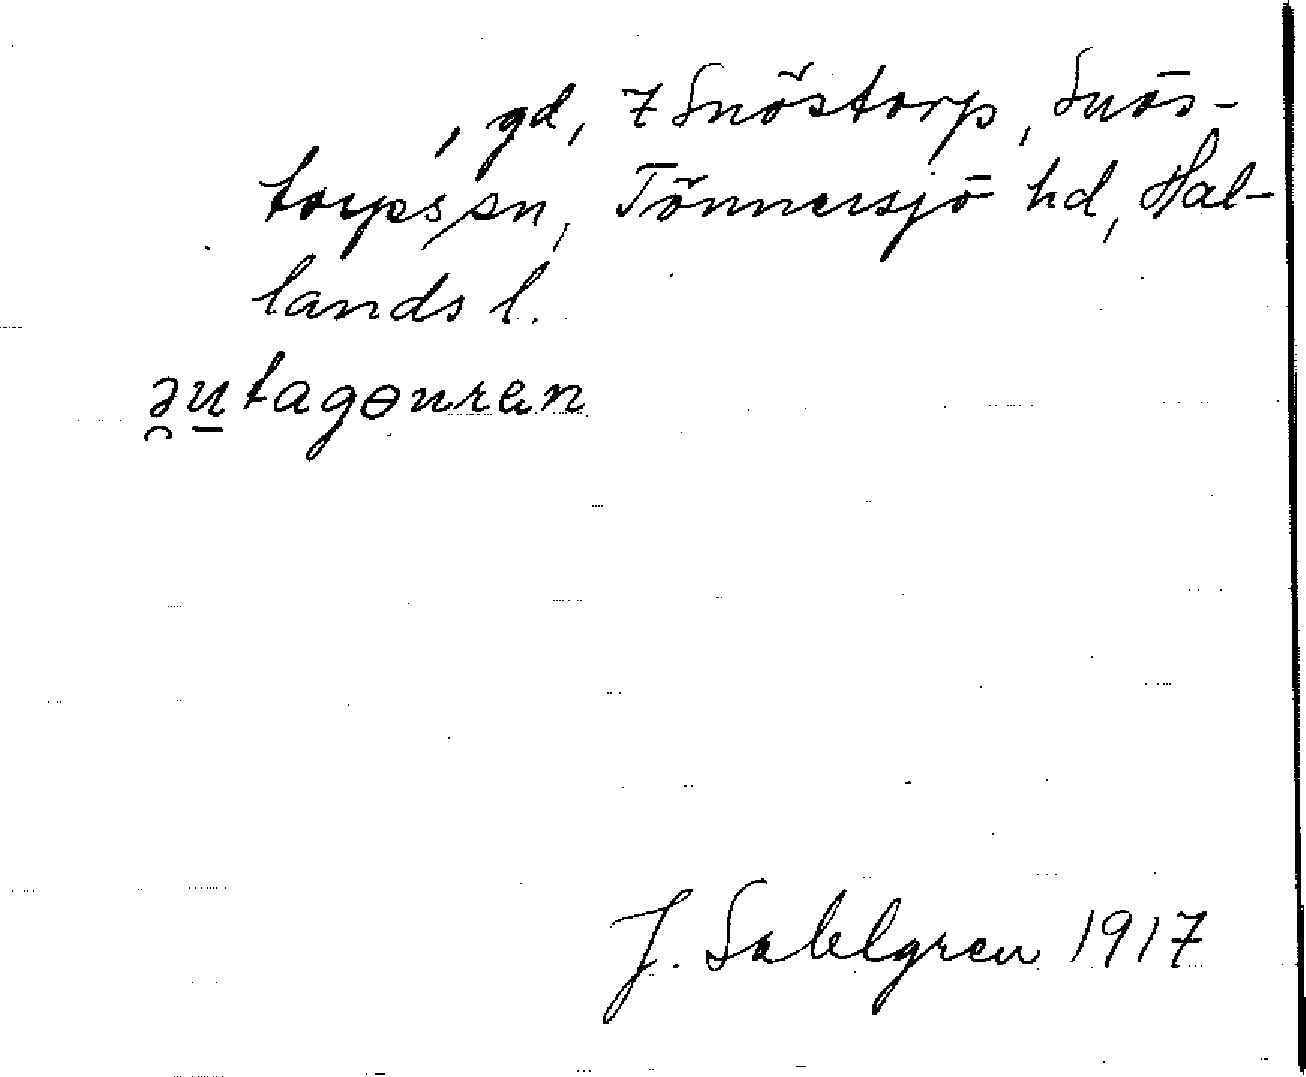 , gd, 7 Snöstorp, Snös-
torps sn, Tönnersjö hd, Hal-
lands l.
ə̯u̲tagɵuren
J. Sahlgren 1917